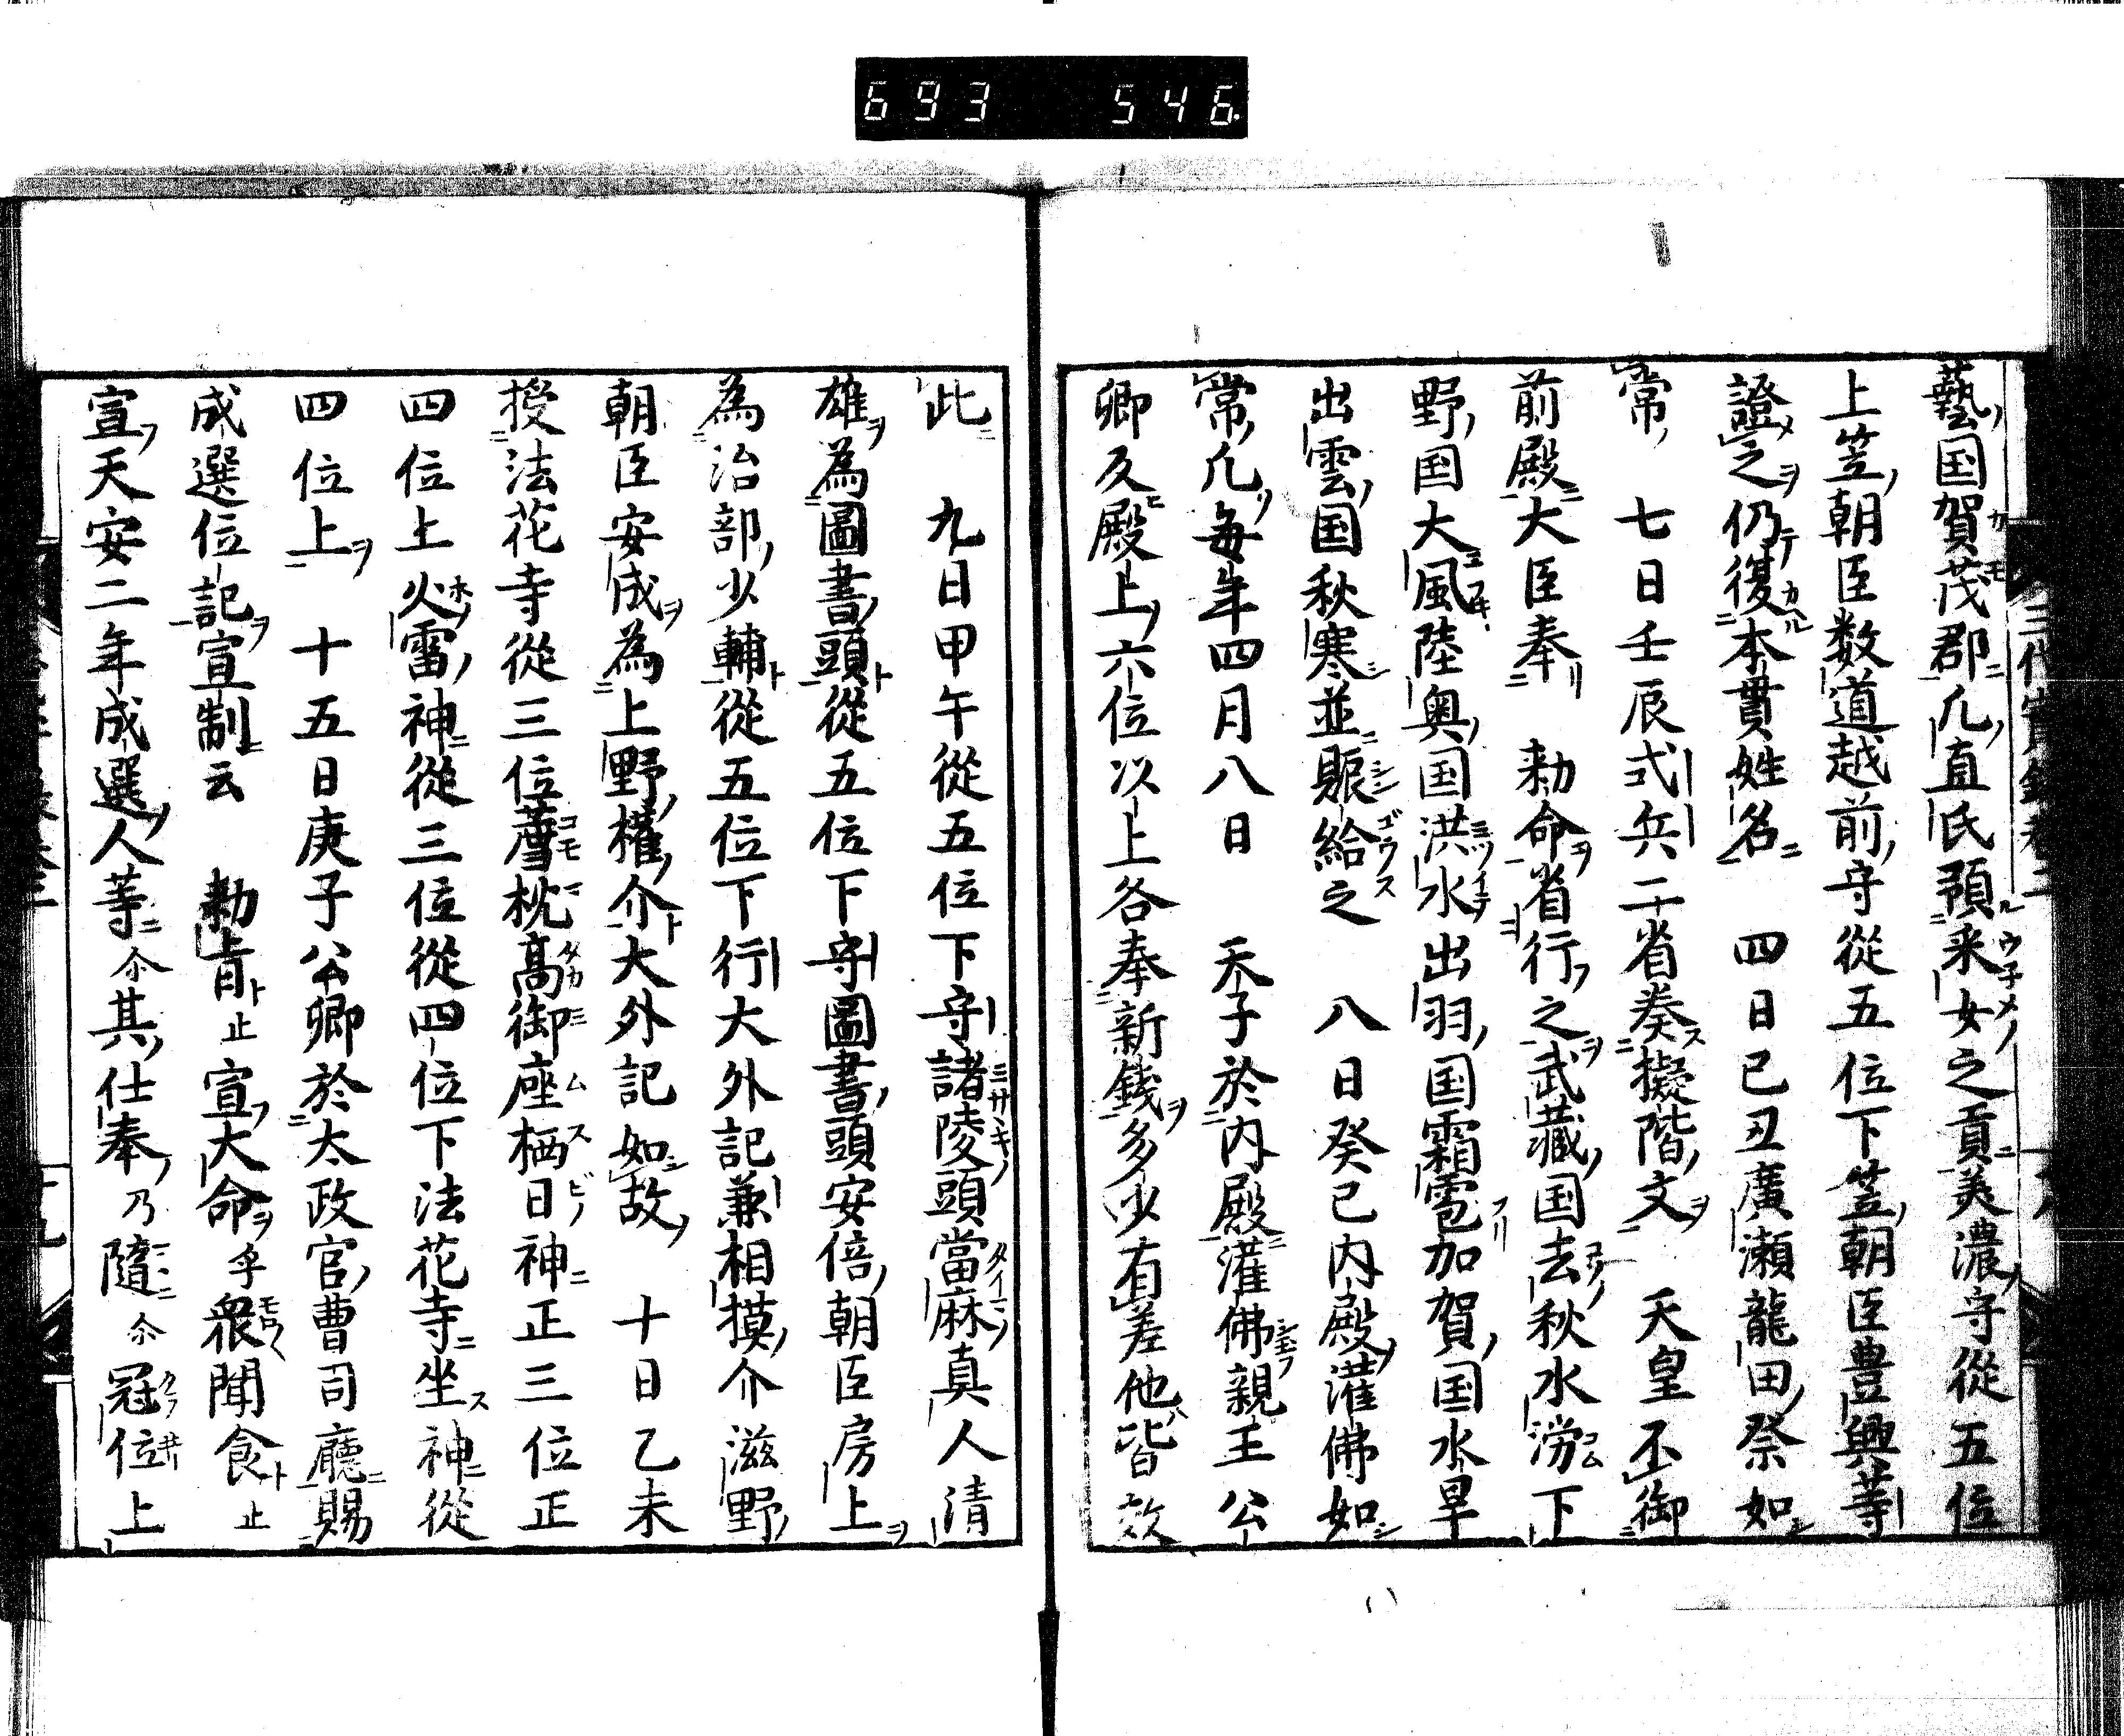 693 546
藝国賀茂郡凡直氏預采女之貢美濃守從五位
上笠朝臣数道越前守從五位下笠朝臣豊興等
證之仍復本貫姓名　四日己丑廣瀬龍田祭如
常　七日壬辰式兵二省奏擬階文　天皇不御
前殿大臣奉　勅命省行之武藏国去秋水澇下
野国大風陸奥国洪水出羽国霜雹加賀国水旱
出雲国秋寒並賑給之　八日癸巳内殿灌佛如
常凡毎年四月八日　天子於内殿灌佛親王公
卿及殿上六位以上各奉新錢多少有差他皆效
此　九日甲午從五位下守諸陵頭當麻真人清
雄為圖書頭從五位下守圖書頭安倍朝臣房上
為治部少輔從五位下行大外記兼相摸介滋野
朝臣安成為上野權介大外記如故　十日乙未
授法花寺從三位薦枕高御座栖日神正三位正
四位上火雷神從三位從四位下法花寺坐神從
四位上　十五日庚子公卿於太政官曹司廳賜
成選位記宣制云　勅旨止宣大命乎衆聞食止
宣天安二年成選人等尒其仕奉乃隨尒冠位上